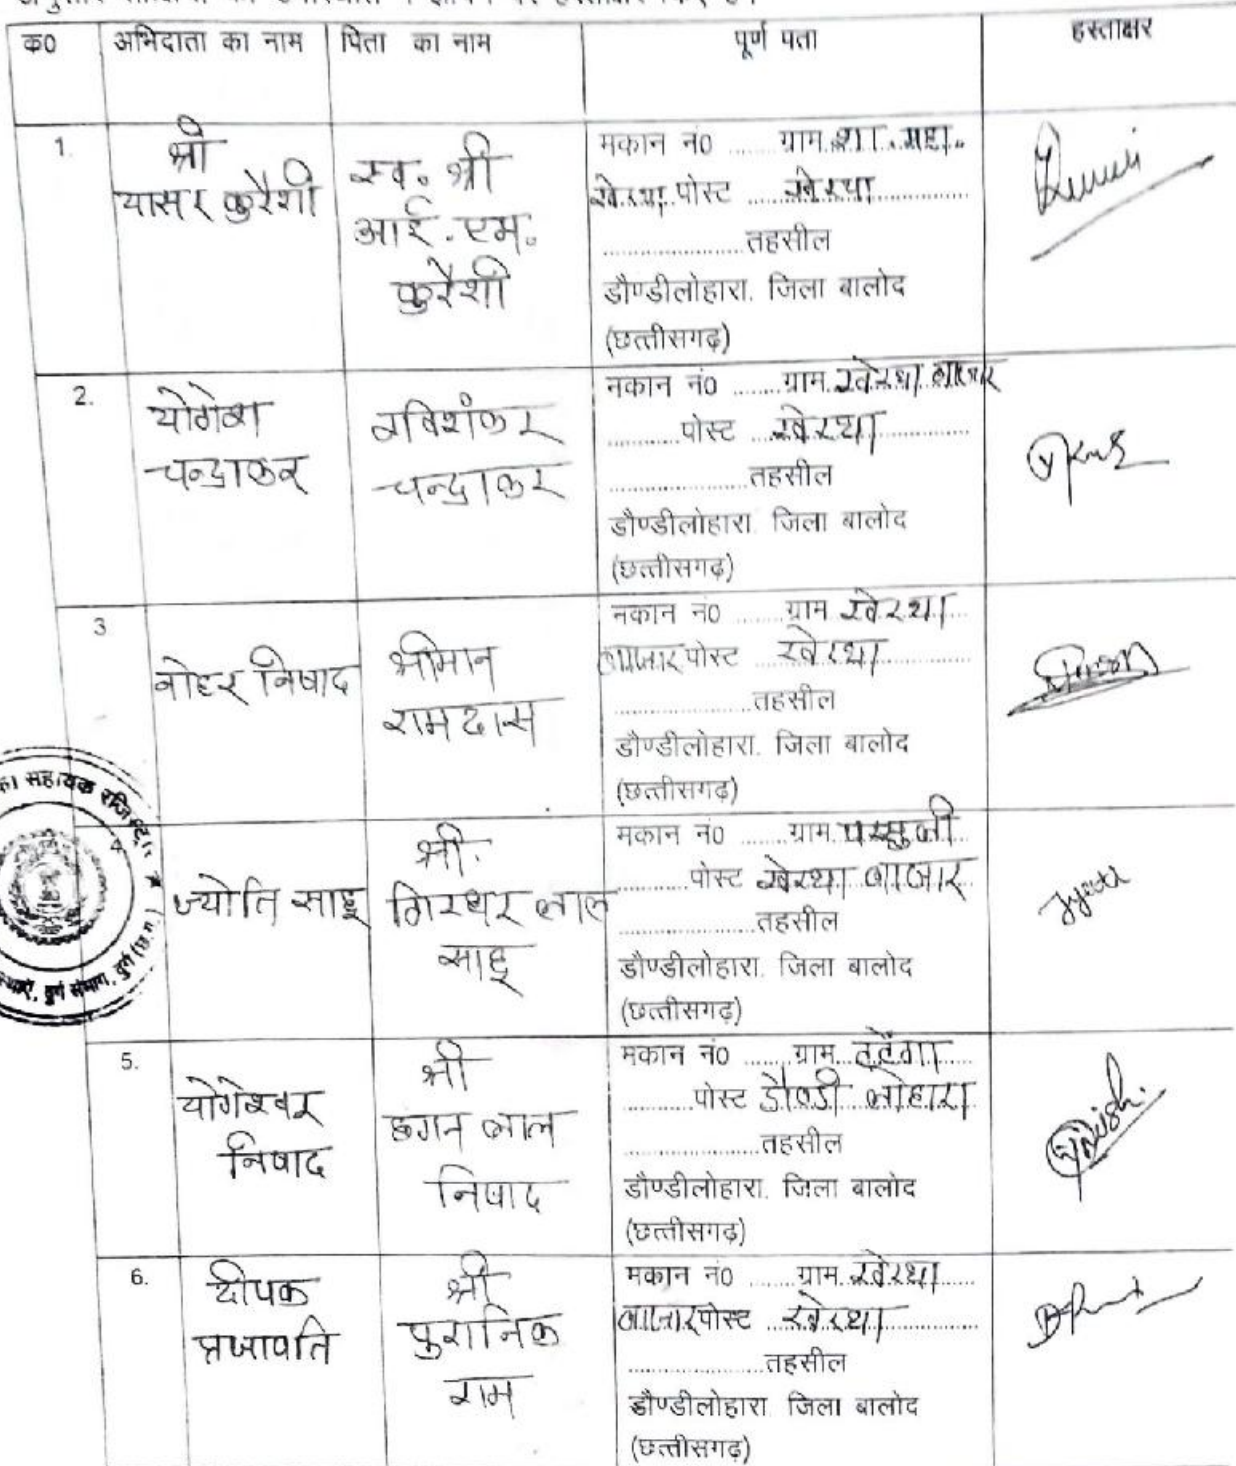 क0 अभिदाता का नाम पिता का नाम पूर्ण पता हस्ताक्षर
1.
श्री
यासर कुरैशी
स्व. श्री
आई. एम.
कुरैशी
मकान नं0 ....... ग्राम शा. महा.
खेरथा पोस्ट ... खेरथा
.................... तहसील
डौण्डीलोहारा. जिला बालोद
(छत्तीसगढ़)
2.
योगेश
चन्द्राकर
रविशंकर
चन्द्राकर
मकान नं0 ....... ग्राम. खेरथा बाजार
.......... पोस्ट ... खेरथा
.................... तहसील
डौण्डीलोहारा. जिला बालोद
(छत्तीसगढ़)
3
नोहर निषाद
श्रीमान
रामदास
मकान नं0 ....... ग्राम खेरथा
बाजार पोस्ट ... खेरथा
.................... तहसील
डौण्डीलोहारा. जिला बालोद
(छत्तीसगढ़)
4
ज्योति साहू
श्री.
गिरधर लाल
साहू
मकान नं0 ....... ग्राम
.......... पोस्ट खेरथा बाजार
.................... तहसील
डौण्डीलोहारा. जिला बालोद
(छत्तीसगढ़)
5.
योगेश्वर
निषाद
श्री
छगन लाल
निषाद
मकान नं0 ....... ग्राम.
.......... पोस्ट डौण्डी लोहारा
.................... तहसील
डौण्डीलोहारा. जिला बालोद
(छत्तीसगढ़)
6.
दीपक
प्रजापति
श्री
पुरानिक
राम
मकान नं0 ....... ग्राम. खेरथा
बाजार पोस्ट ... खेरथा
.................... तहसील
डौण्डीलोहारा. जिला बालोद
(छत्तीसगढ़)
सहायक रजिस्ट्रार
दुर्ग संभाग, दुर्ग (छ.ग.)
Jyoti